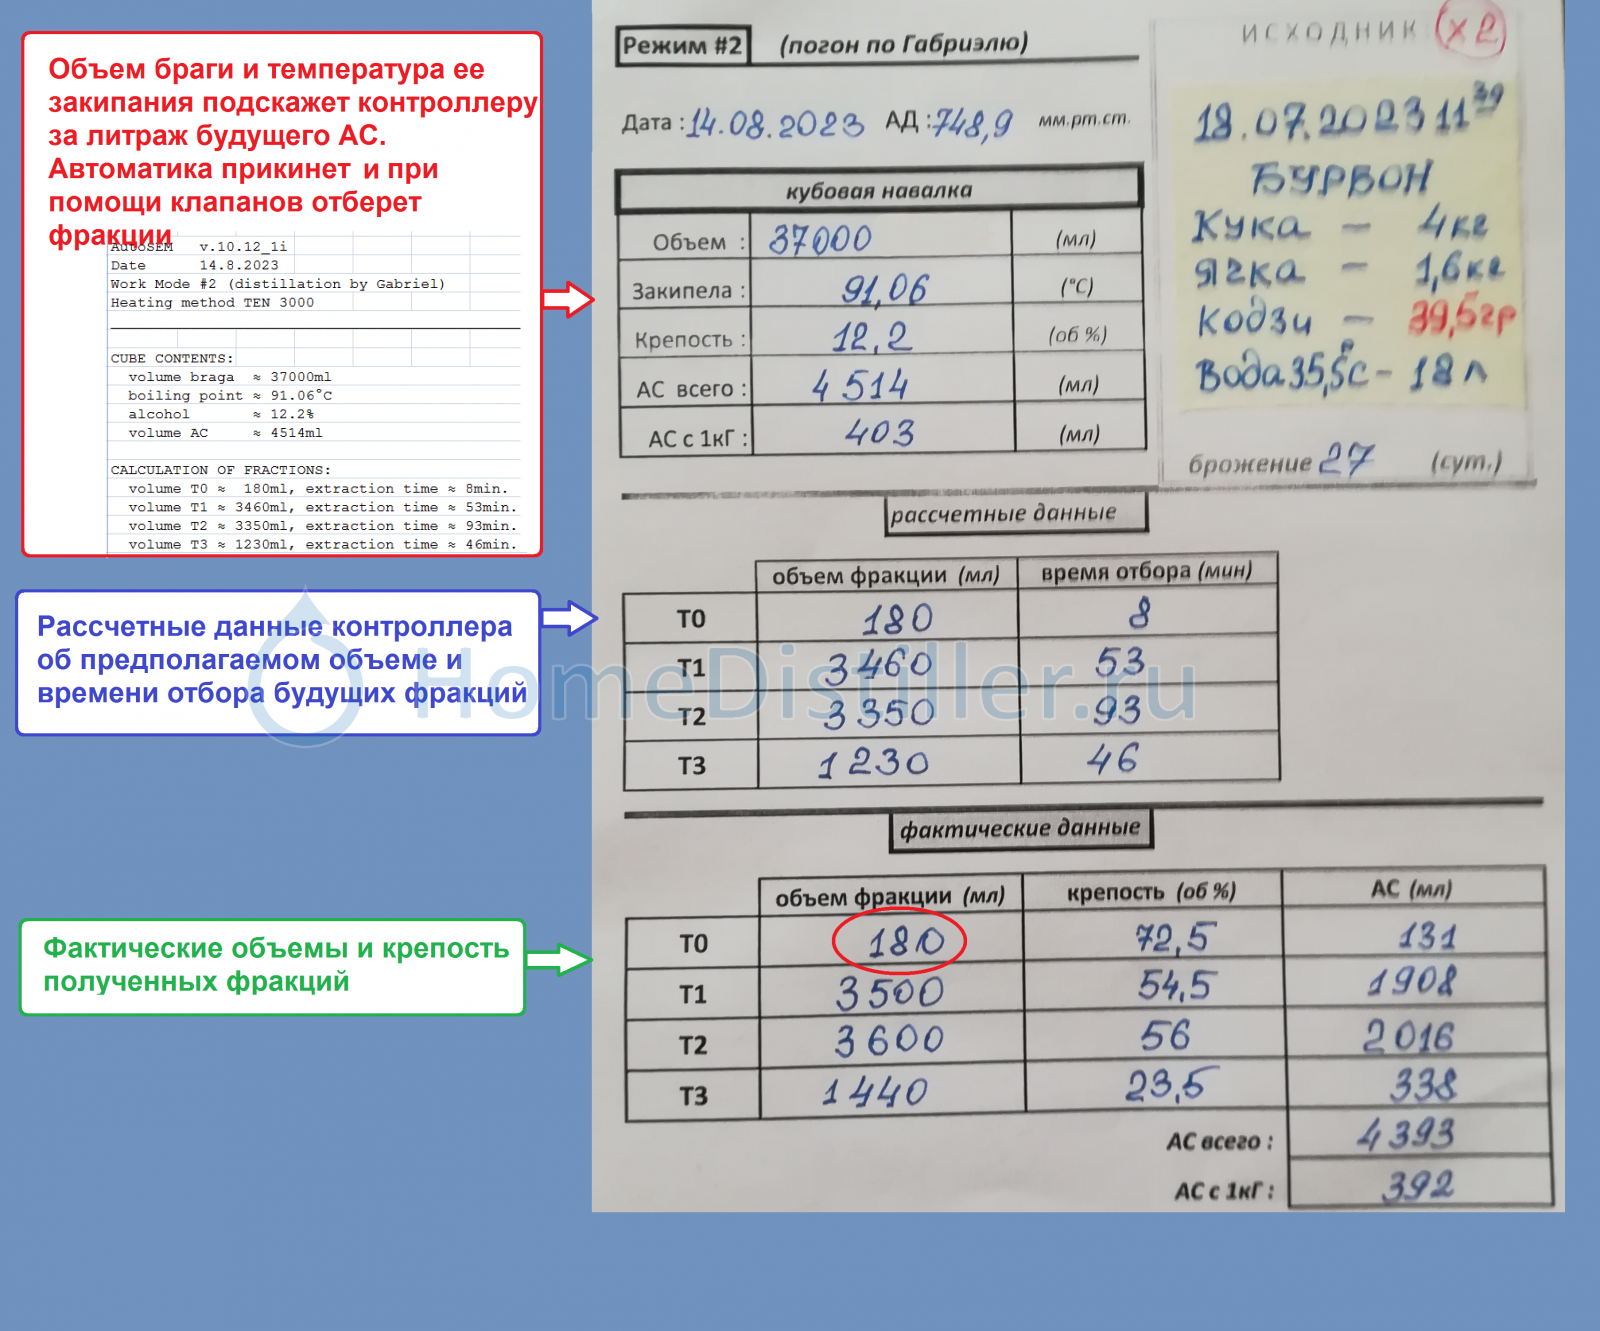 Объем браги и температура ее
закипания подскажет контроллеру
за литраж будущего АС.
Автоматика прикинет и при
помощи клапанов отберет
фракции
AutoSEM v.10.12_1i
Date 14.8.2023
Work Mode #2 (distillation by Gabriel)
Heating method TEN 3000
CUBE CONTENTS:
volume braga ≈ 37000ml
boiling point ≈ 91.06°C
alcohol ≈ 12.2%
volume AC ≈ 4514ml
CALCULATION OF FRACTIONS:
volume T0 ≈ 180ml, extraction time ≈ 8min.
volume T1 ≈ 3460ml, extraction time ≈ 53min.
volume T2 ≈ 3350ml, extraction time ≈ 93min.
volume T3 ≈ 1230ml, extraction time ≈ 46min.
Рассчетные данные контроллера
об предполагаемом объеме и
времени отбора будущих фракций
Фактические объемы и крепость
полученных фракций
Режим #2 (погон по Габриэлю)
Дата : 14.08.2023 АД : 748,9 мм.рт.ст.
кубовая навалка
Объем : 37000 (мл)
Закипела : 91,06 (°С)
Крепость : 12,2 (об %)
АС всего : 4514 (мл)
АС с 1кГ : 403 (мл)
ИСХОДНИК x2
18.07.2023 11 39
БУРБОН
Кука – 4кг
Ячка – 1,6кг
Кодзи – 39,5гр
Вода 35,5°С – 18л
брожение 27 (сут.)
рассчетные данные
объем фракции (мл) время отбора (мин)
Т0 180 8
Т1 3460 53
Т2 3350 93
Т3 1230 46
HomeDistiller.ru
фактические данные
объем фракции (мл) крепость (об %) АС (мл)
Т0 180 72,5 131
Т1 3500 54,5 1908
Т2 3600 56 2016
Т3 1440 23,5 338
АС всего : 4393
АС с 1кГ : 392